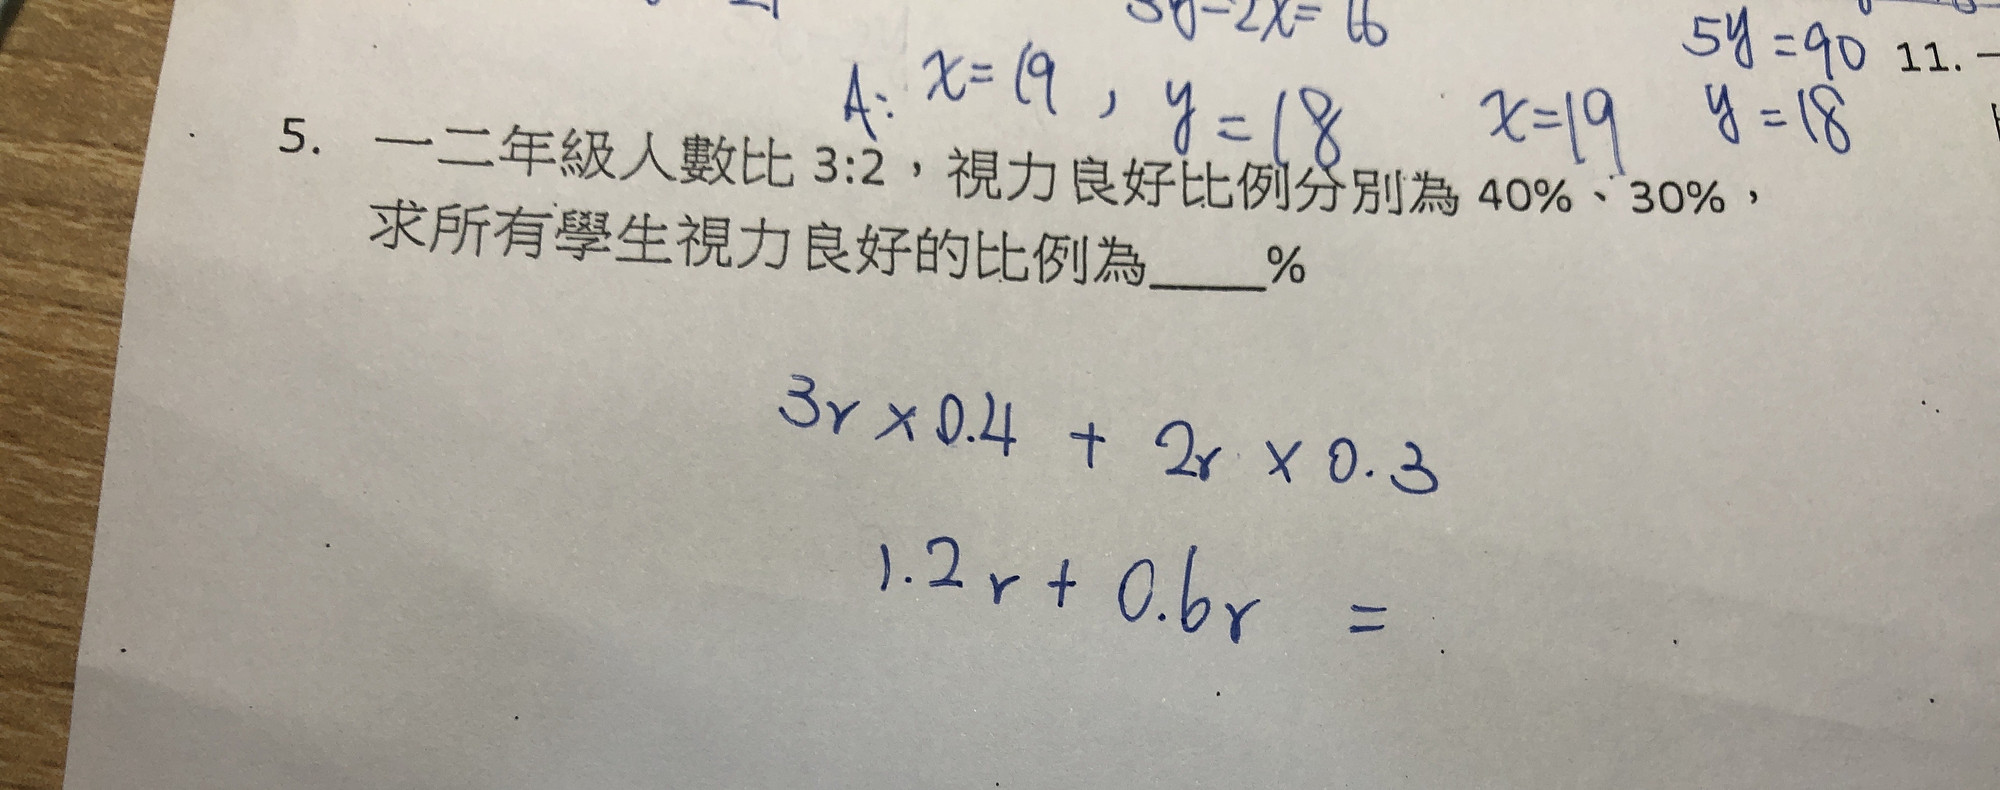 3y-2x=16
5y=90
A: x=19, y=18
x=19
y=18
11.
5. 一二年級人數比 3:2，視力良好比例分別為 40%、30%，
求所有學生視力良好的比例為____%
3r×0.4 + 2r×0.3
1.2r+0.6r =